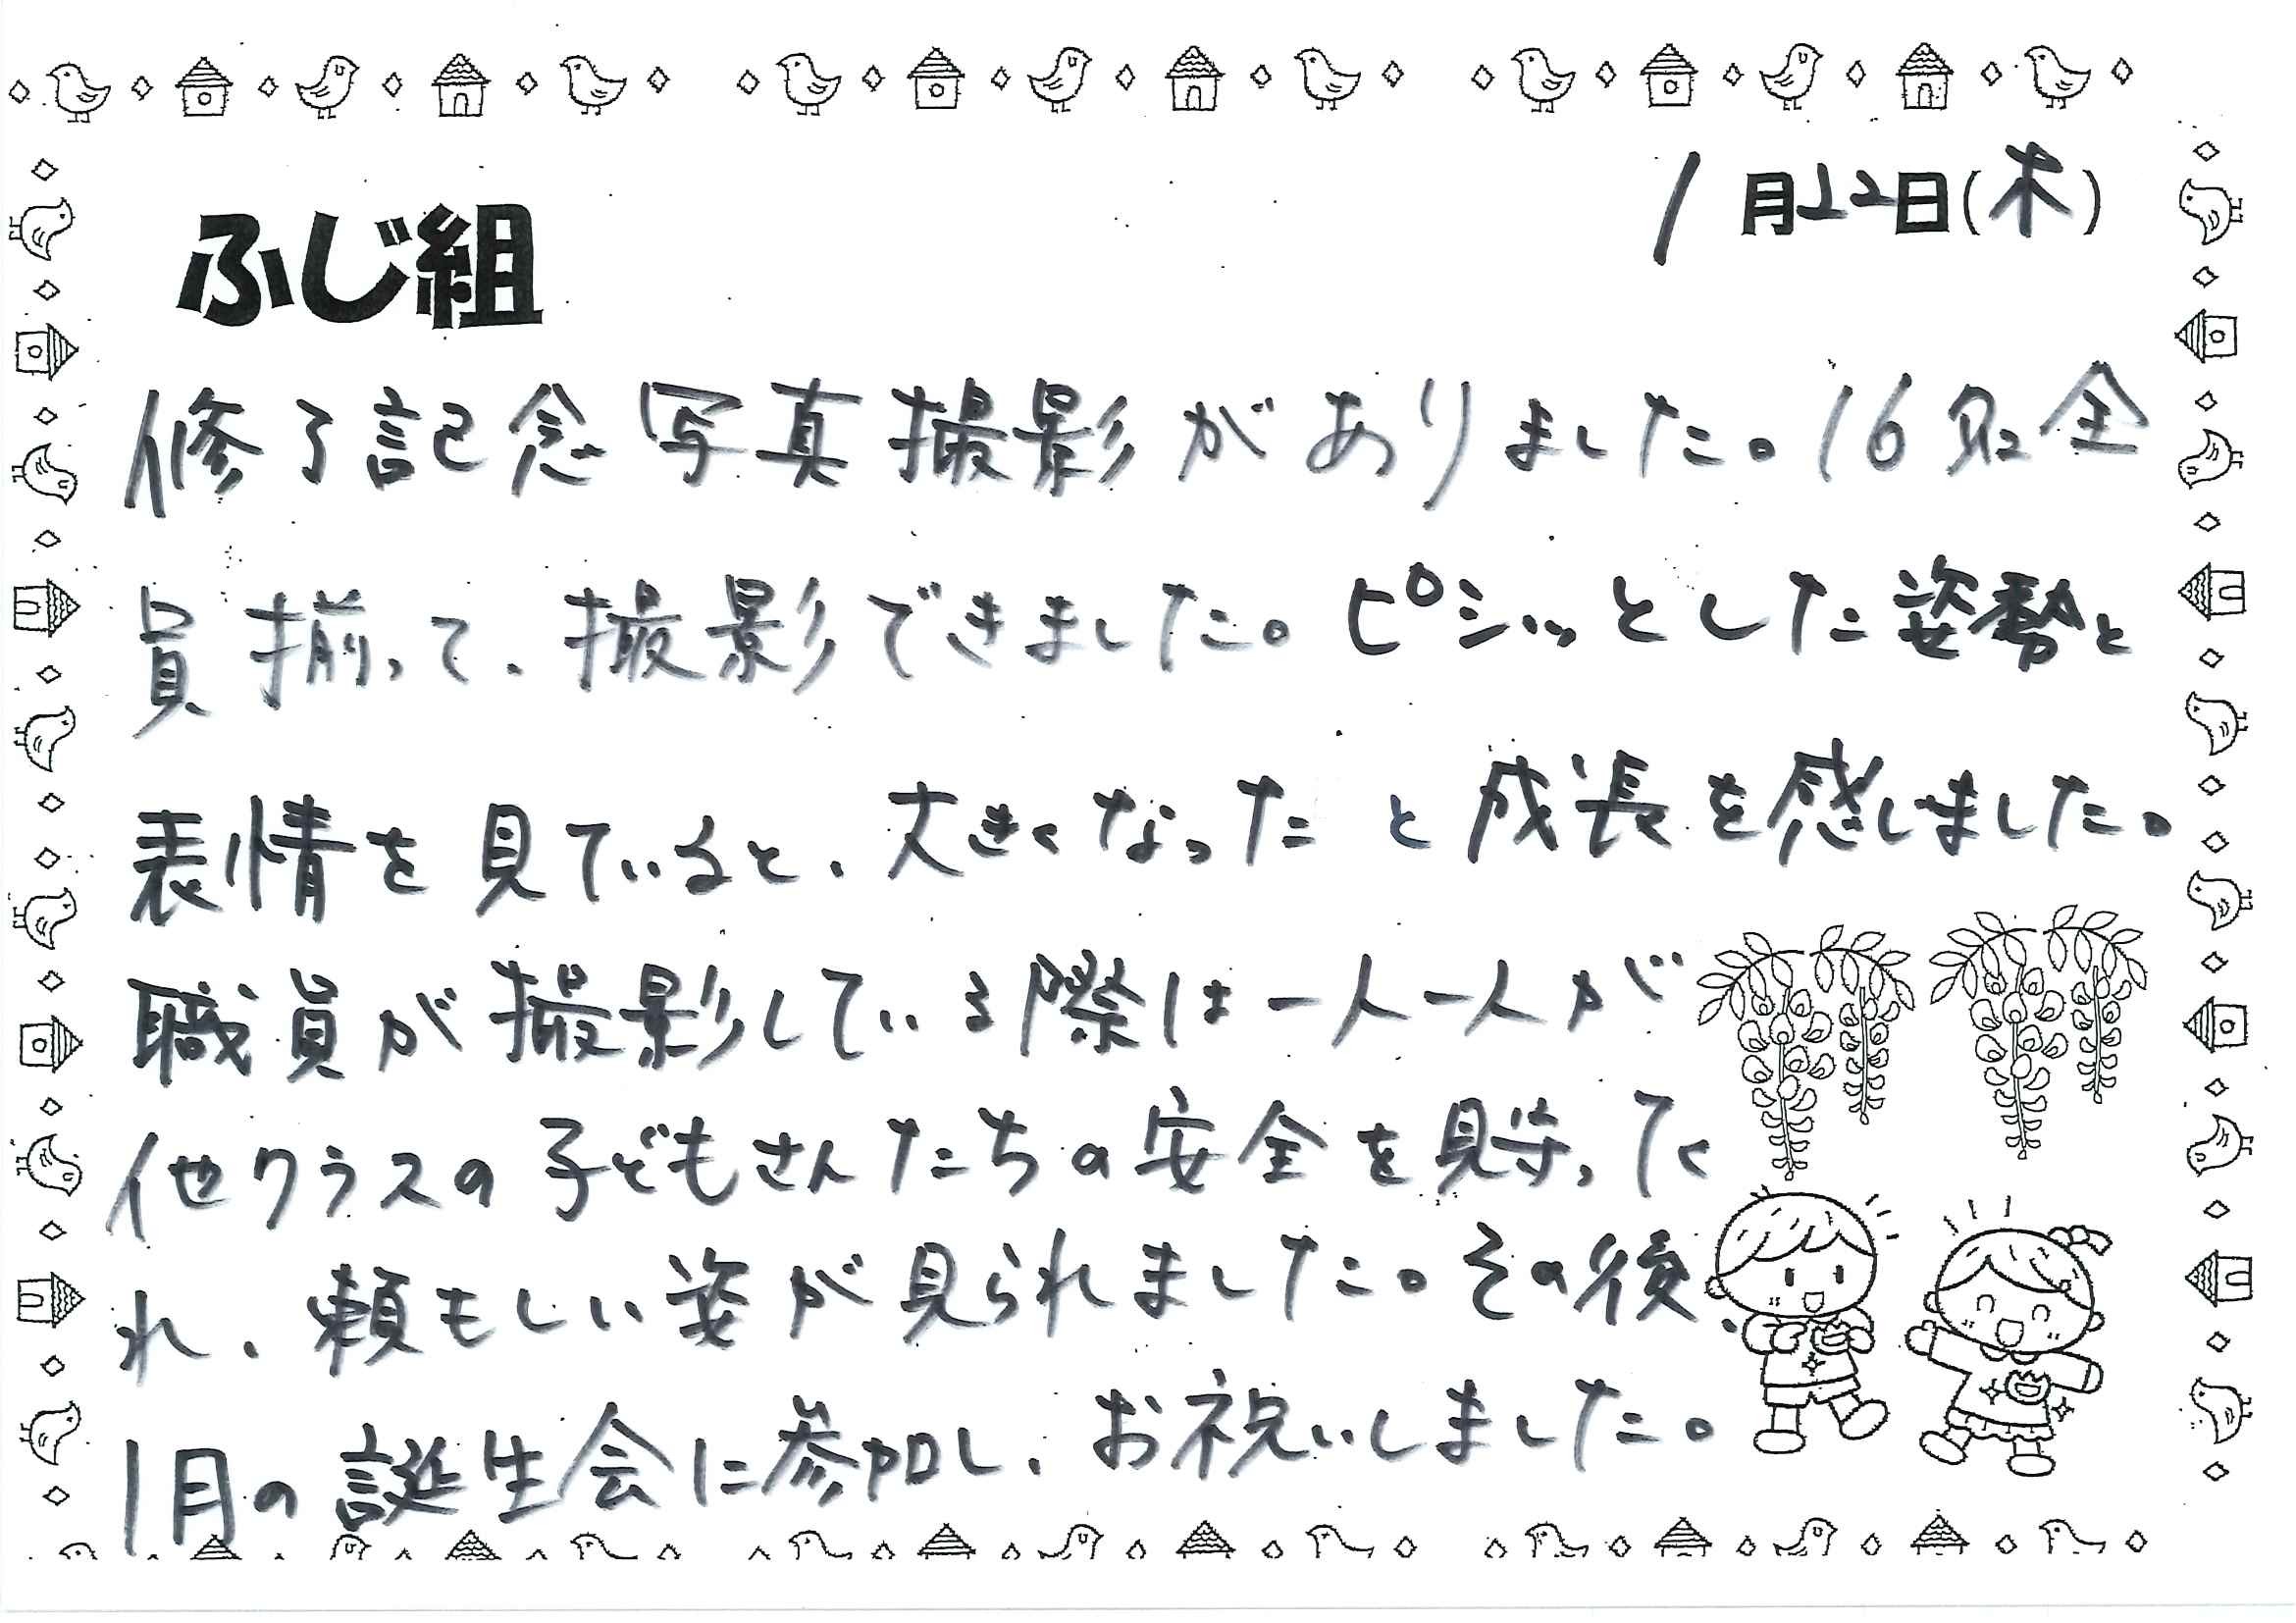 1月22日(木)
ふじ組
修了記念写真撮影がありました。16名全
員揃って、撮影できました。ピシッとした姿勢と
表情を見ていると、大きくなったと成長を感じました。
職員が撮影している際は一人一人が
他クラスの子どもさんたちの安全を見守ってく
れ、頼もしい姿が見られました。その後、
1月の誕生会に参加し、お祝いしました。